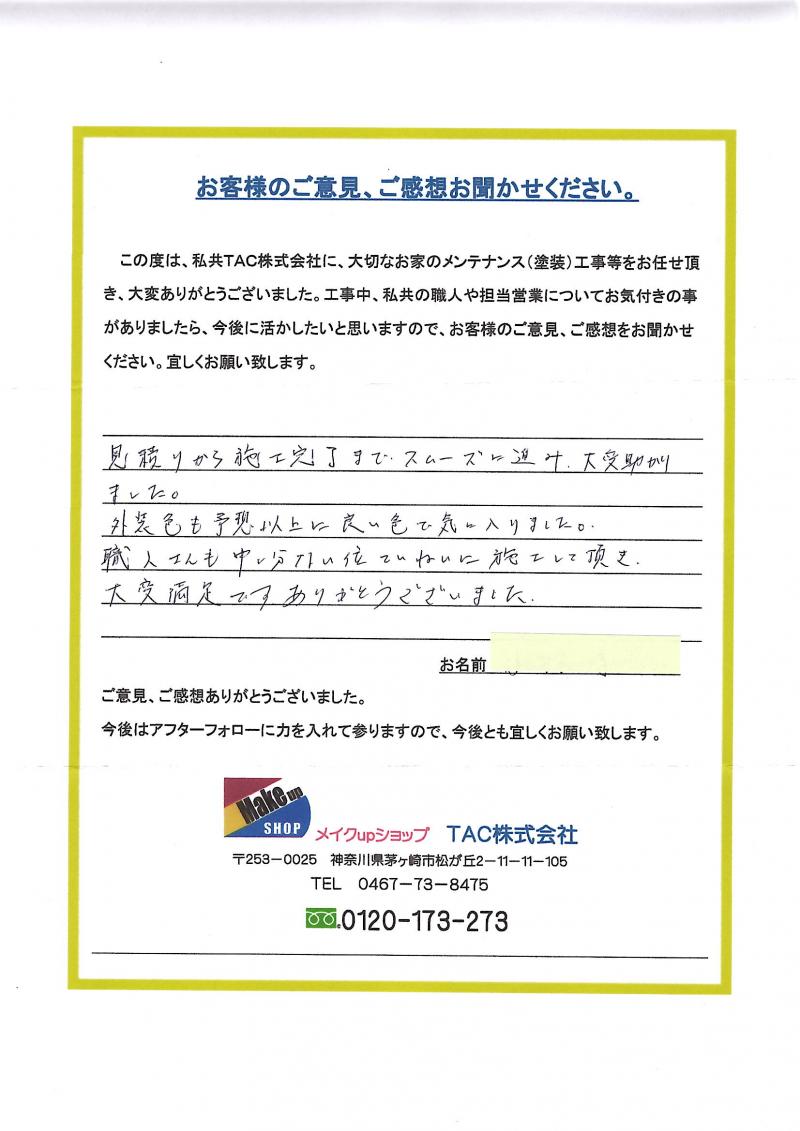 お客様のご意見、ご感想お聞かせください。
この度は、私共TAC株式会社に、大切なお家のメンテナンス（塗装）工事等をお任せ頂
き、大変ありがとうございました。工事中、私共の職人や担当営業についてお気付きの事
がありましたら、今後に活かしたいと思いますので、お客様のご意見、ご感想をお聞かせ
ください。宜しくお願い致します。
見積りから施工完了までスムーズに進み、大変助かり
ました。
外装色も予想以上に良い色で気に入りました。
職人さんも申し分ない位ていねいに施工して頂き、
大変満足ですありがとうございました。
お名前
ご意見、ご感想ありがとうございました。
今後はアフターフォローに力を入れて参りますので、今後とも宜しくお願い致します。
Make up
SHOP
メイクupショップ TAC株式会社
〒253－0025 神奈川県茅ヶ崎市松が丘2－11－11－105
TEL 0467－73－8475
0120-173-273